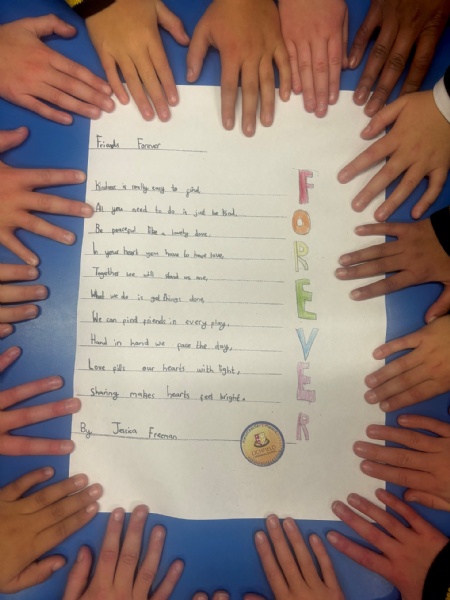 Friends Forever
Kindness is really easy to find,
All you need to do is just be kind.
Be peaceful like a lovely dove,
In your heart you have to have love.
Together we will stand as one,
What we do is get things done.
We can find friends in every play,
Hand in hand we face the day,
Love fills our hearts with light,
Sharing makes hearts feel bright.
By Jessica Freeman
FOREVER